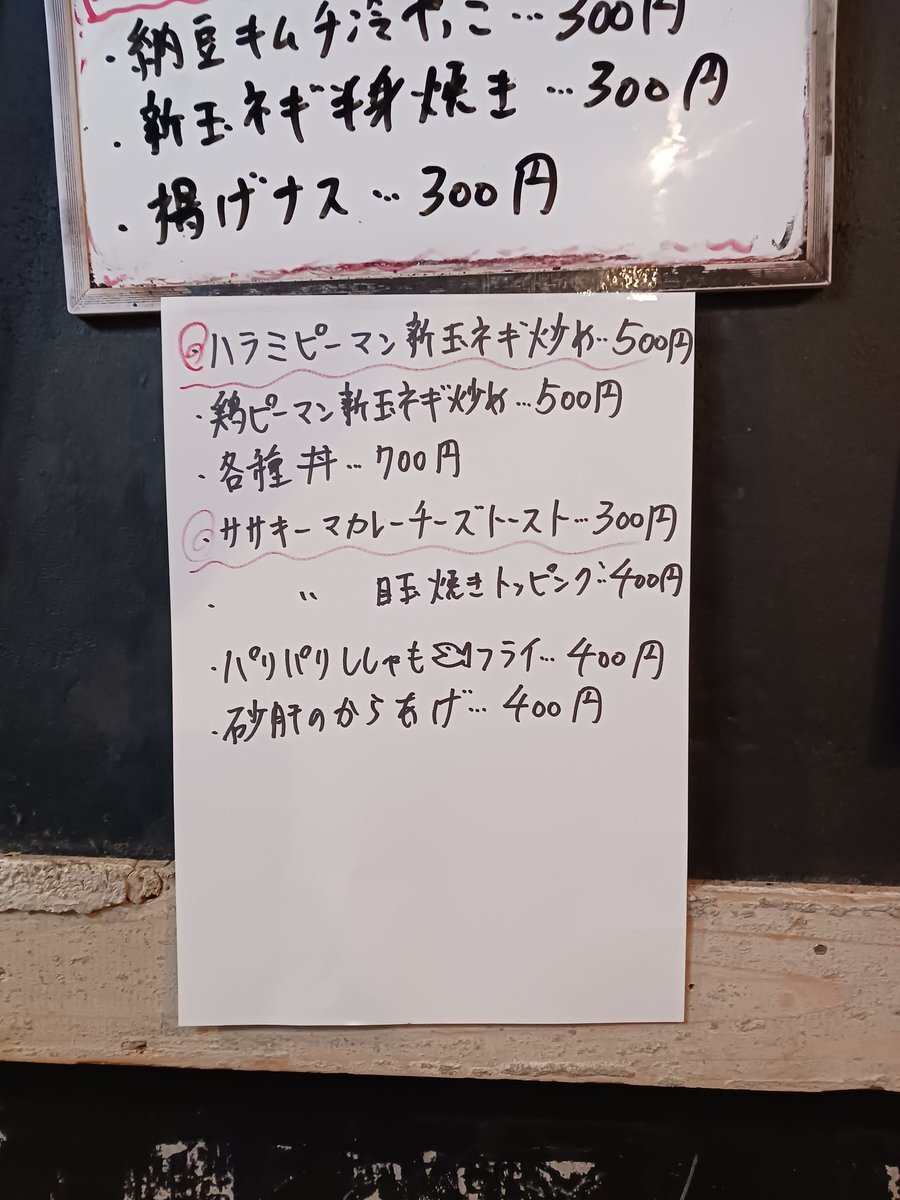 ・納豆キムチ冷やっこ…300円
・新玉ネギ半身焼き…300円
・揚げナス…300円
・ハラミピーマン新玉ネギ炒め…500円
・鶏ピーマン新玉ネギ炒め…500円
・各種丼…700円
・ササキーマカレーチーズトースト…300円
・ 〃 目玉焼きトッピング…400円
・パリパリししゃもフライ…400円
・砂肝のからあげ…400円